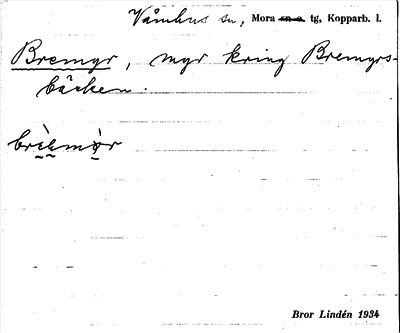 Våmhus sn, Mora sn o. tg, Kopparb. l.
Bremyr, myr kring Bremyrs-
bäcken.
Bror Lindén 1934